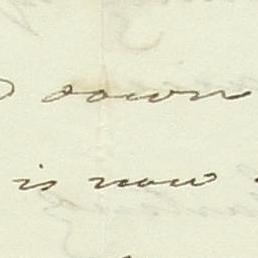 down
is now